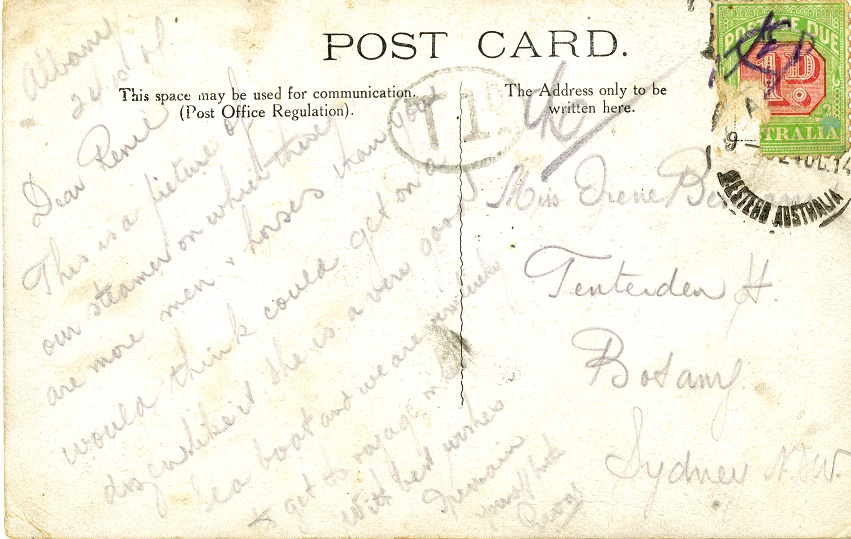 POST CARD.
This space may be used for communication.
(Post Office Regulation).
The Address only to be
written here.
T 1
POSTAGE DUE
1D.
AUSTRALIA
WESTERN AUSTRALIA
Albany
Dear Renie
This is a picture of
our steamer on which there
are more men & horses than you
would think could get on a
dozen like it She is a very good
sea boat and we are
to get to voyage in
With best wishes
I remain
Miss Irene
Tenterden St.
Botany.
Sydney NSW.